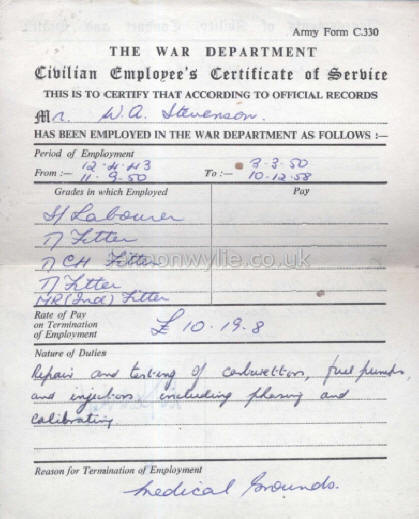 Army Form C.330
THE WAR DEPARTMENT
Civilian Employee's Certificate of Service
THIS IS TO CERTIFY THAT ACCORDING TO OFFICIAL RECORDS
Mr. W.A. Stevenson.
HAS BEEN EMPLOYED IN THE WAR DEPARTMENT AS FOLLOWS :—
Period of Employment
12-4-43 3-3-50
From :— 11-9-50 To :— 10-12-58
Grades in which Employed Pay
Labourer
Fitter
CH Fitter
Fitter
MR (Ind) Fitter
Rate of Pay
on Termination
of Employment £10-19-8
Nature of Duties
Repair and testing of carburettors, fuel pumps,
and injectors including phasing and
calibrating
Reason for Termination of Employment
Medical Grounds.